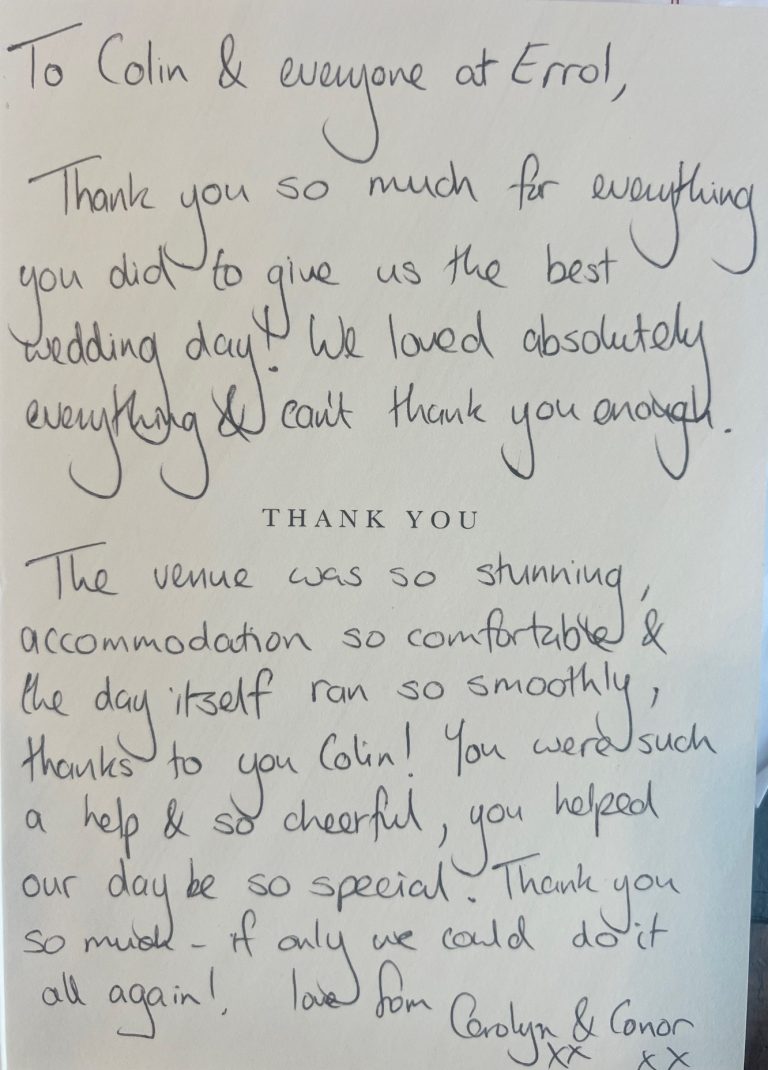 To Colin & everyone at Errol,
Thank you so much for everything
you did to give us the best
wedding day! We loved absolutely
everything & can't thank you enough.
THANK YOU
The venue was so stunning,
accommodation so comfortable &
the day itself ran so smoothly,
thanks to you Colin! You were such
a help & so cheerful, you helped
our day be so special. Thank you
so much - if only we could do it
all again! love from Carolyn & Conor
xx xx